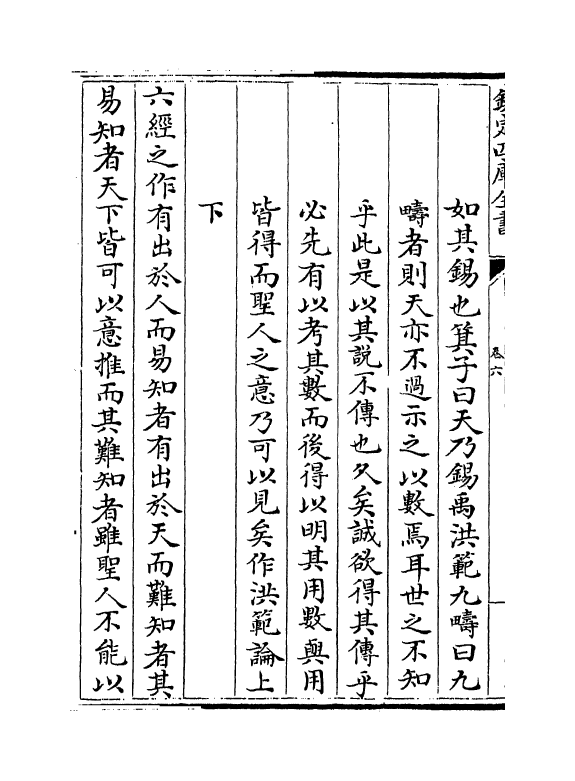 欽定四庫全書
卷六
如其錫也箕子曰天乃錫禹洪範九疇曰九
疇者則天亦不過示之以數焉耳世之不知
乎此是以其說不傳也久矣誠欲得其傳乎
必先有以考其數而後得以明其用數與用
皆得而聖人之意乃可以見矣作洪範論上
下
六經之作有出於人而易知者有出於天而難知者其
易知者天下皆可以意推而其難知者雖聖人不能以